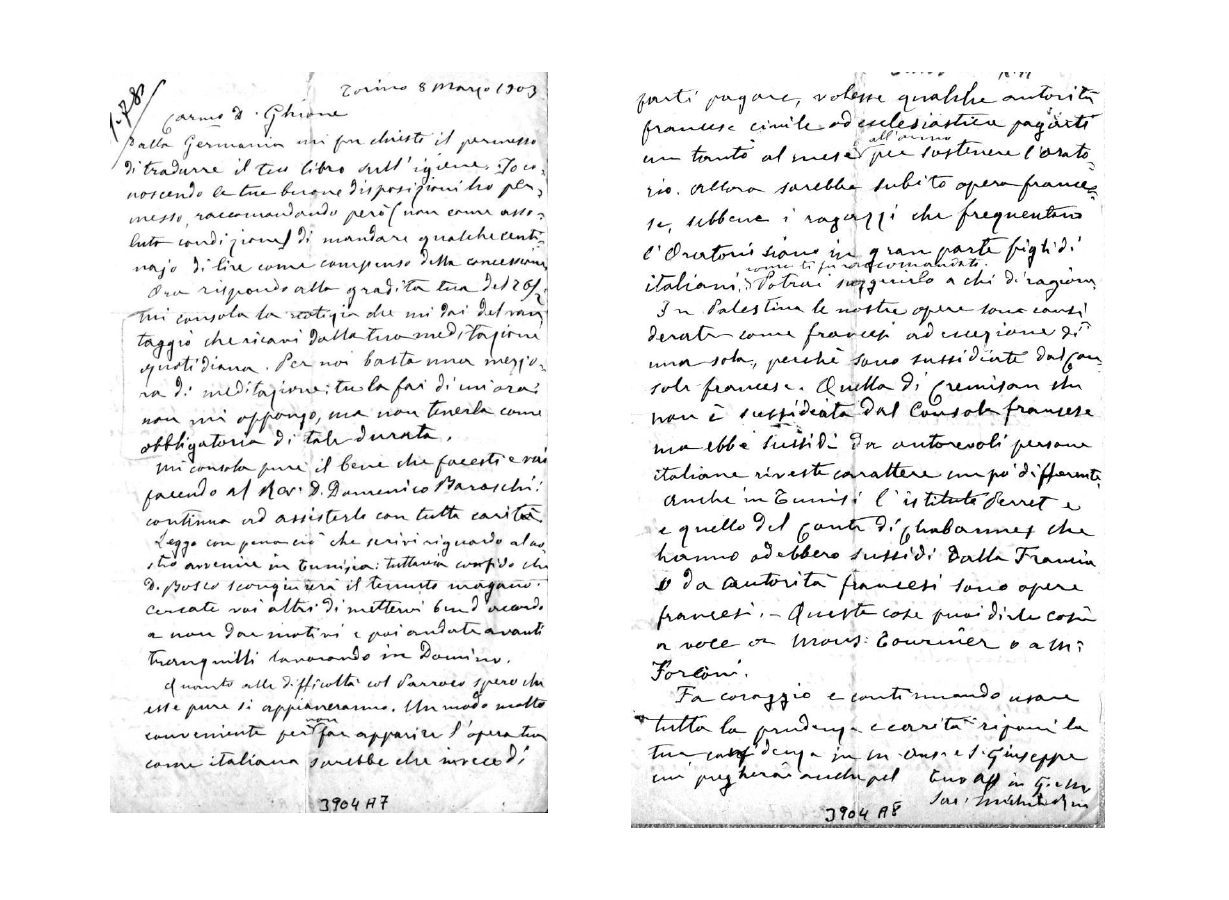 Torino 8 Marzo 1903
S. 78
Carmo D. Ghione
Dalla Germania mi fu chiesto il permesso
di tradurre il tuo libro sull'igiene. Io co-
noscendo le tue buone disposizioni ho per-
messo, raccomandando però (non come asso-
luta condizione) di mandare qualche centi-
najo di lire come compenso della concessione
Ora rispondo alla gradita tua del 26/2
Mi consola la notizia che mi dai del van-
taggio che ricavi dalla tua meditazione
quotidiana. Per noi basta una mezz'o-
ra di meditazione; tu la fai di un'ora:
non mi oppongo, ma non tenerla come
obbligatoria di tale durata.
Mi consola pure il bene che facesti e vai
facendo al Rev. D. Domenico Baraschi:
continua ad assisterlo con tutta carità.
Leggo con pena ciò che scrivi riguardo al no-
stro avvenire in Tunisia: tuttavia confido che
D. Bosco scongiurerà il temuto magano:
cercate voi altri di mettervi ben d'accordo
a non dar motivi e poi andate avanti
tranquilli lavorando in Domino.
Quanto alle difficoltà col Parroco spero che
esse pure si appianeranno. Un modo molto
conveniente per non far apparire l'opera tua
come italiana sarebbe che invece di
3904 A7
farti pagare, volesse qualche autorità
francese civile od ecclesiastica pagarti
un tanto al mese all'anno per sostenere l'Orato-
rio. Allora sarebbe subito opera france-
se, sebbene i ragazzi che frequentano
l'Oratorio siano in gran parte figli di
italiani. come ti fu raccomandato.
Potrai suggerirlo a chi di ragione
In Palestina le nostre opere sono consi
derate come francesi ad eccezione di
una sola, perchè sono sussidiate dal Con-
sole francese. Quella di Cremisan che
non è sussidiata dal Console francese
ma ebbe sussidi da autorevoli persone
italiane riveste carattere un po' differente.
Anche in Tunisi l'istituto Perret e
e quello del Conte di Chabannes che
hanno od ebbero sussidi dalla Francia
o da autorità francesi sono opere
francesi. - Queste cose puoi dirle così
a voce a Mons: Tournier o a M:
Forconi.
Fa coraggio e continuando usare
tutta la prudenza e carità riponi la
tua confidenza in M. Aus. e S. Giuseppe
mi pregherai anche pel tuo aff in G. e M
Sac. Michele Rua
3904 A8